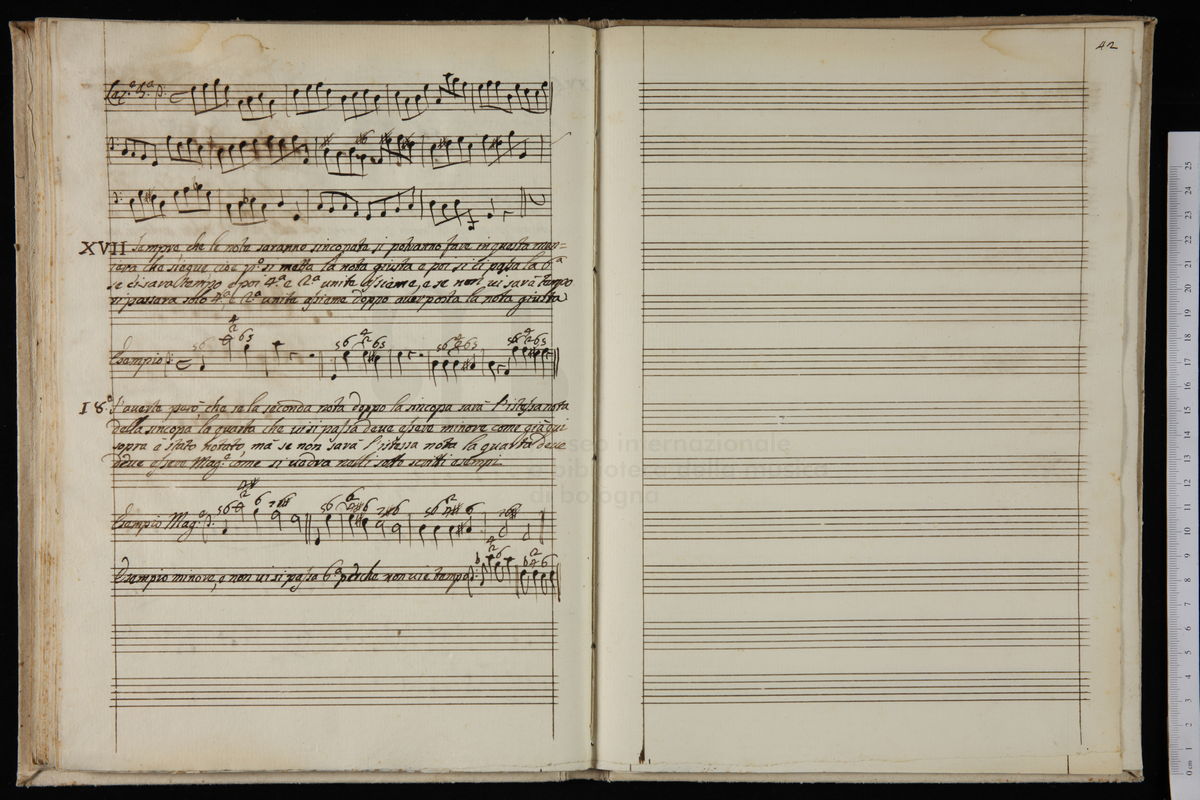 42
XVII Sempre che le note saranno sincopate si potranno fare in questa man=
iera che siegue cioe p.º si metta la nota giusta e poi si ci passa la 6ª
se ci sara tempo e poi 4ª e 2ª unite assieme, e se non vi sarà tempo
si passara solo 4ª e 2ª unite assieme doppo aver posta la nota giusta
Esempio
18.º S'averte però che se la seconda nota doppo la sincopa sarà l'istessa nota
della sincopa la quarta che vi si passa deve essere minore come già qui
sopra è stato notato, mà se non sarà l'istessa nota la quarta deve
deve essere Mag.º come si vedrà nelli sotto scritti esempi
Esempio Mag.º
Esempio minore, e non vi si passa 6ª perche non vi è tempo
museo internazionale
e biblioteca della musica
di bologna
0 cm 1 2 3 4 5 6 7 8 9 10 11 12 13 14 15 16 17 18 19 20 21 22 23 24 25